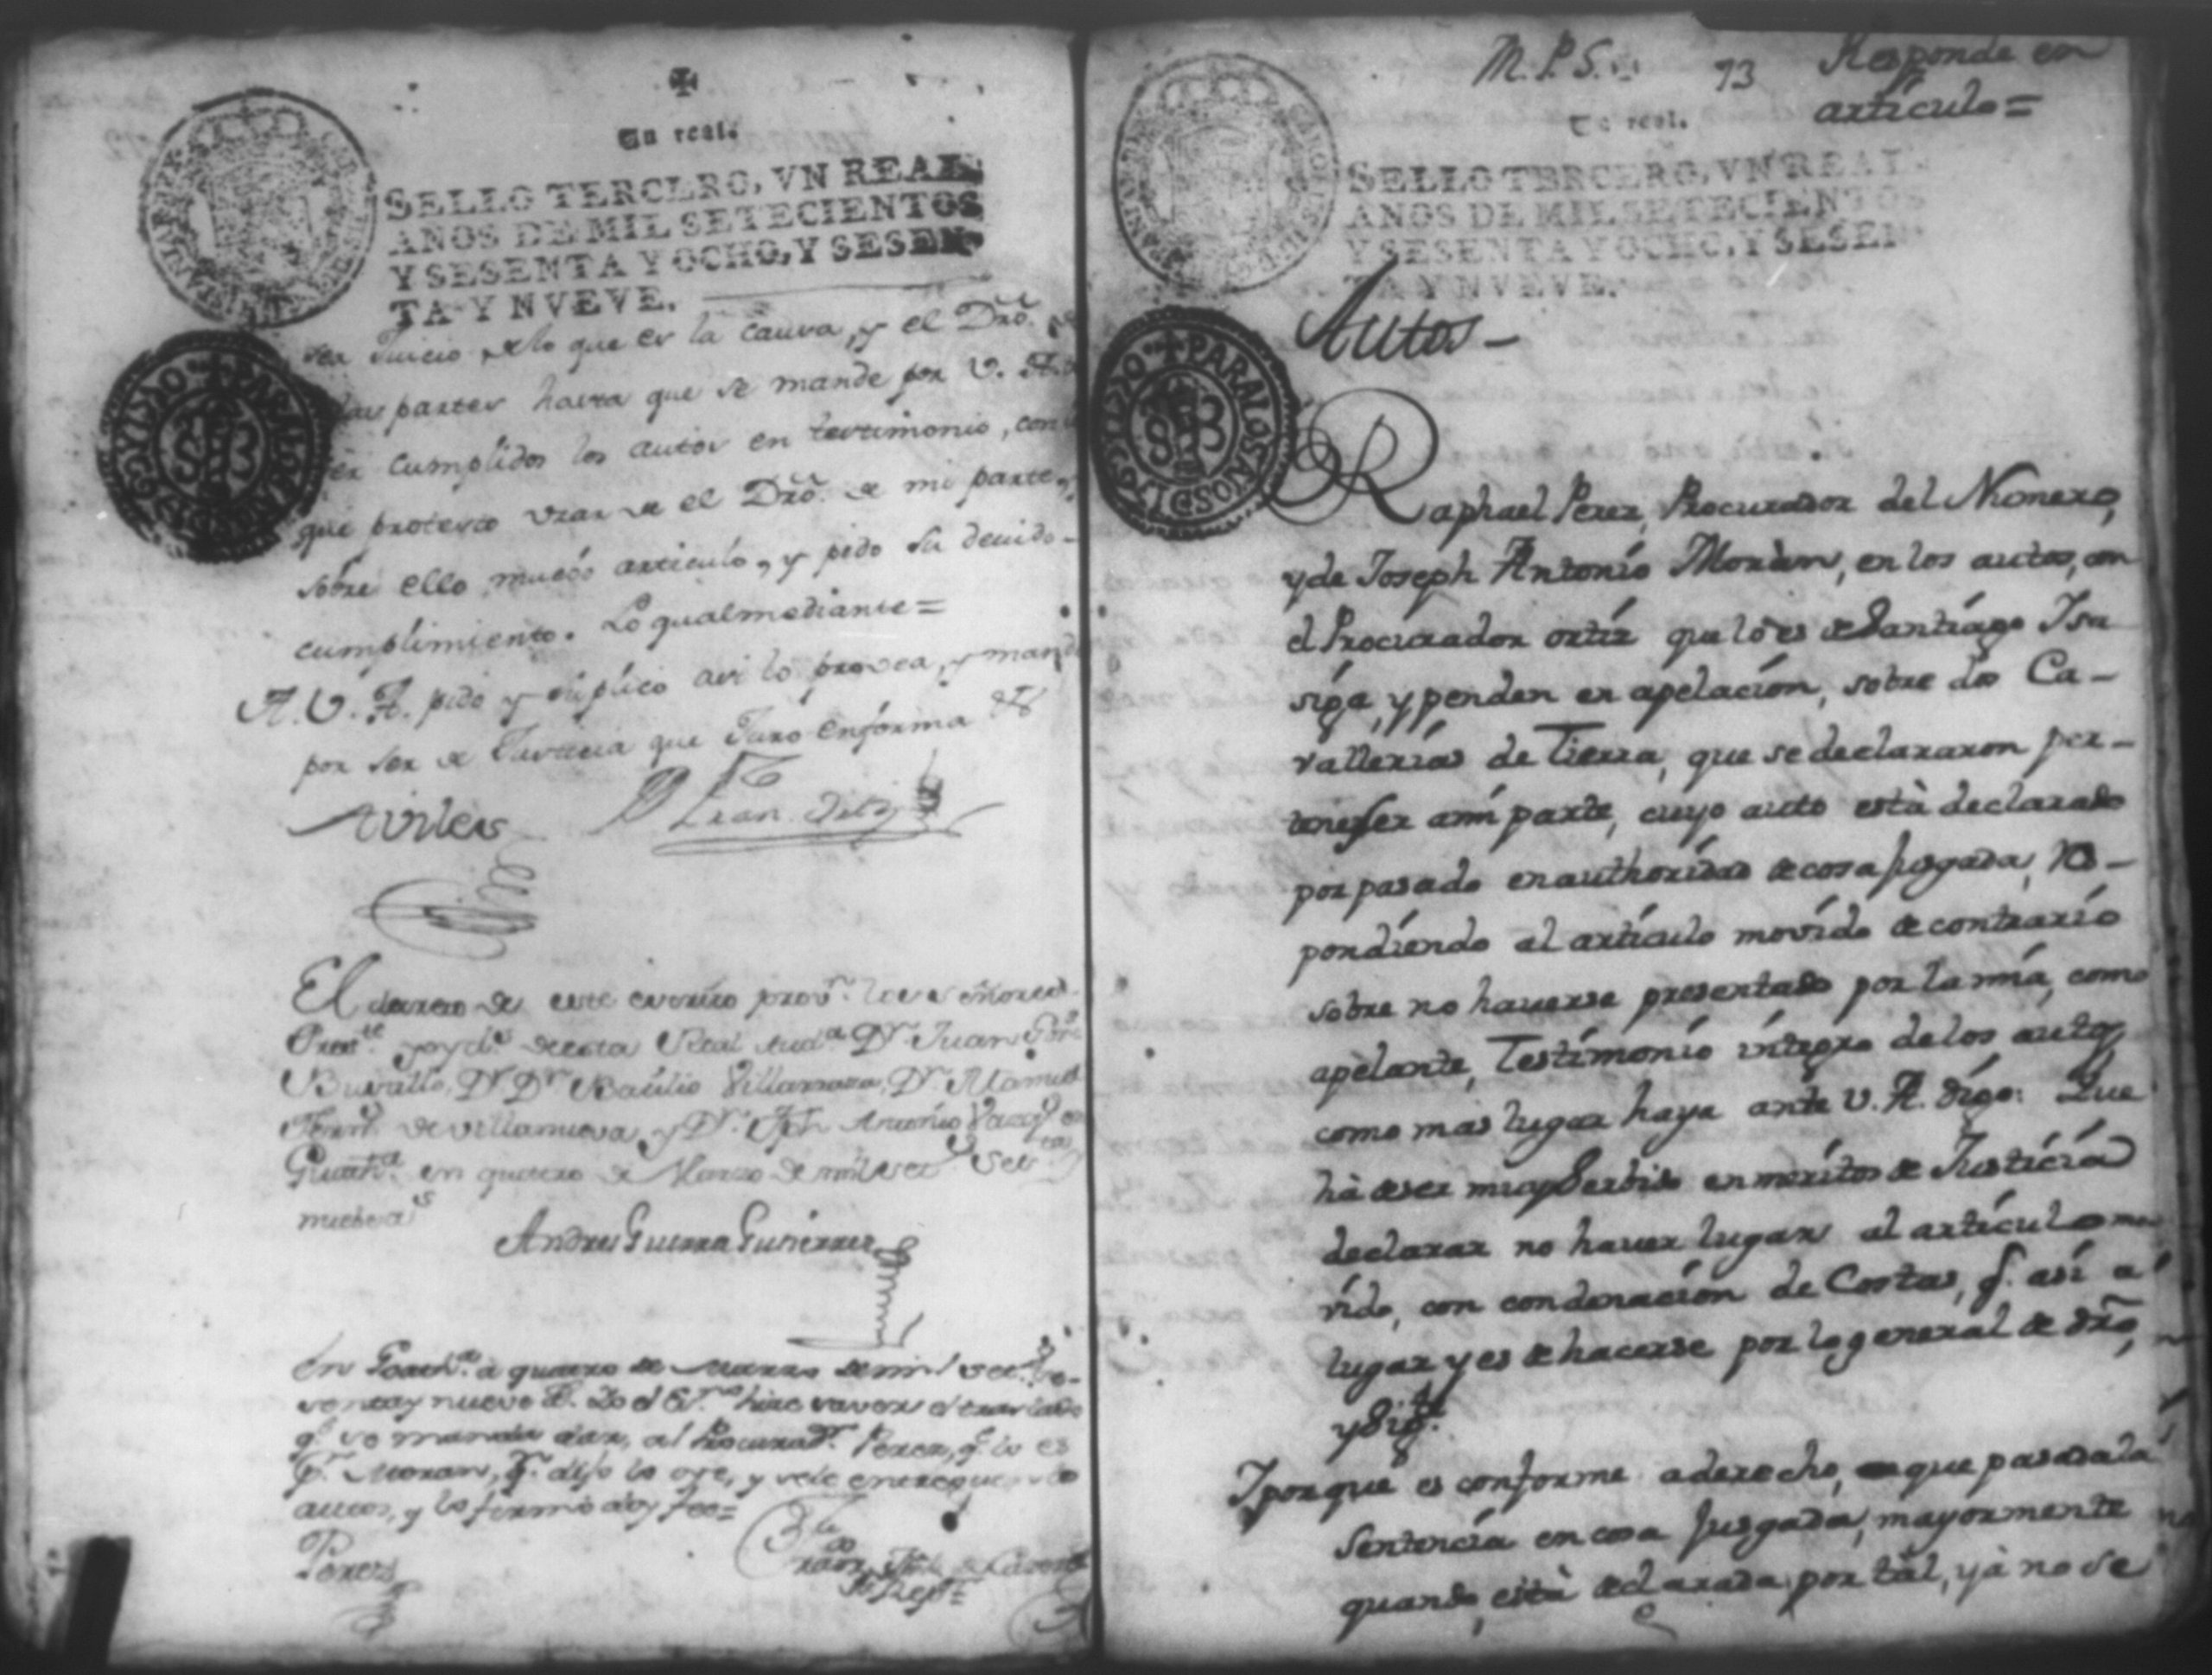 Un real.
SELLO TERCERO, VN REAL
AÑOS DE MIL SETECIENTOS
Y SESENTA Y OCHO, Y SESEN-
TA Y NVEVE.
PARA LOS AÑOS D 1769 Y 1770
ser Juicio de lo que es la causa, y el Dro. de
las partes hasta que se mande por V. A.
ser cumplidos los autos en testimonio, con
que protexto usar de el Dro. de mi parte,
sobre ello muebo articulo, y pido su devido
cumplimiento. Lo qual mediante =
A. V. A. pido y suplico asi lo provea, y mande
por ser de Justicia que Juro en forma &
Aviles
Fran. Ortiz
El decreto de este escrito prov.n los señores
Pres.te y oyd.s de esta Real Aud.a Dn Juan Gonz
Bustillo, Dn Dn Basilio Villarrasa, Dn Manuel
Fern.z de Villanueva, y Dn Jph Antonio
Guath.a en quatro de Marzo de mil set.s ses.ta y
nueve a.s
Andres Guerra Gutierrez
En Goath.a a quatro de Marzo de mil set.s se-
senta y nueve a.s Yo el Rr. hize saver el traslado
q.e se manda dar, al Procurad.r Perez, q.e lo es
de Moran, q.n dijo lo oye, y se le entregaron los
autos, y lo firmó doy fee=
Perez
Rr.
M. P. S.
73
Responde en
artículo =
Un real.
SELLO TERCERO, VN REAL
AÑOS DE MIL SETECIENTOS
Y SESENTA Y OCHO, Y SESEN
TA Y NVEVE.
PARA LOS AÑOS D 1769 Y 1770
Autos -
Raphael Perez, Procurador del Numero,
y de Joseph Antonio Moràn, en los autos, con
el Procurador ortiz que lo es de Santiago Isa
siga, y penden en apelación, sobre dos Ca-
vallerias de Tierra, que se declararon per-
tenesser a mi parte, cuyo auto està declarado
por pasado en authoridad de cosa jusgada, res-
pondiendo al artículo movido de contrario
sobre no haverse presentado por la mía, como
apelante, Testimonio integro de los autos,
como mas lugar haya ante V. A. digo: Que
hà de ser muy servido en meritos de Justicia
declarar no haver lugar al articulo mo
vido, con condenacion de Costas, q. así a
lugar y es de hacerse por lo general de dro,
y sig.te
Y porque es conforme a derecho, que pasada la
sentencia en cosa jusgada, mayormente
quando está declarada por tàl, yà no se